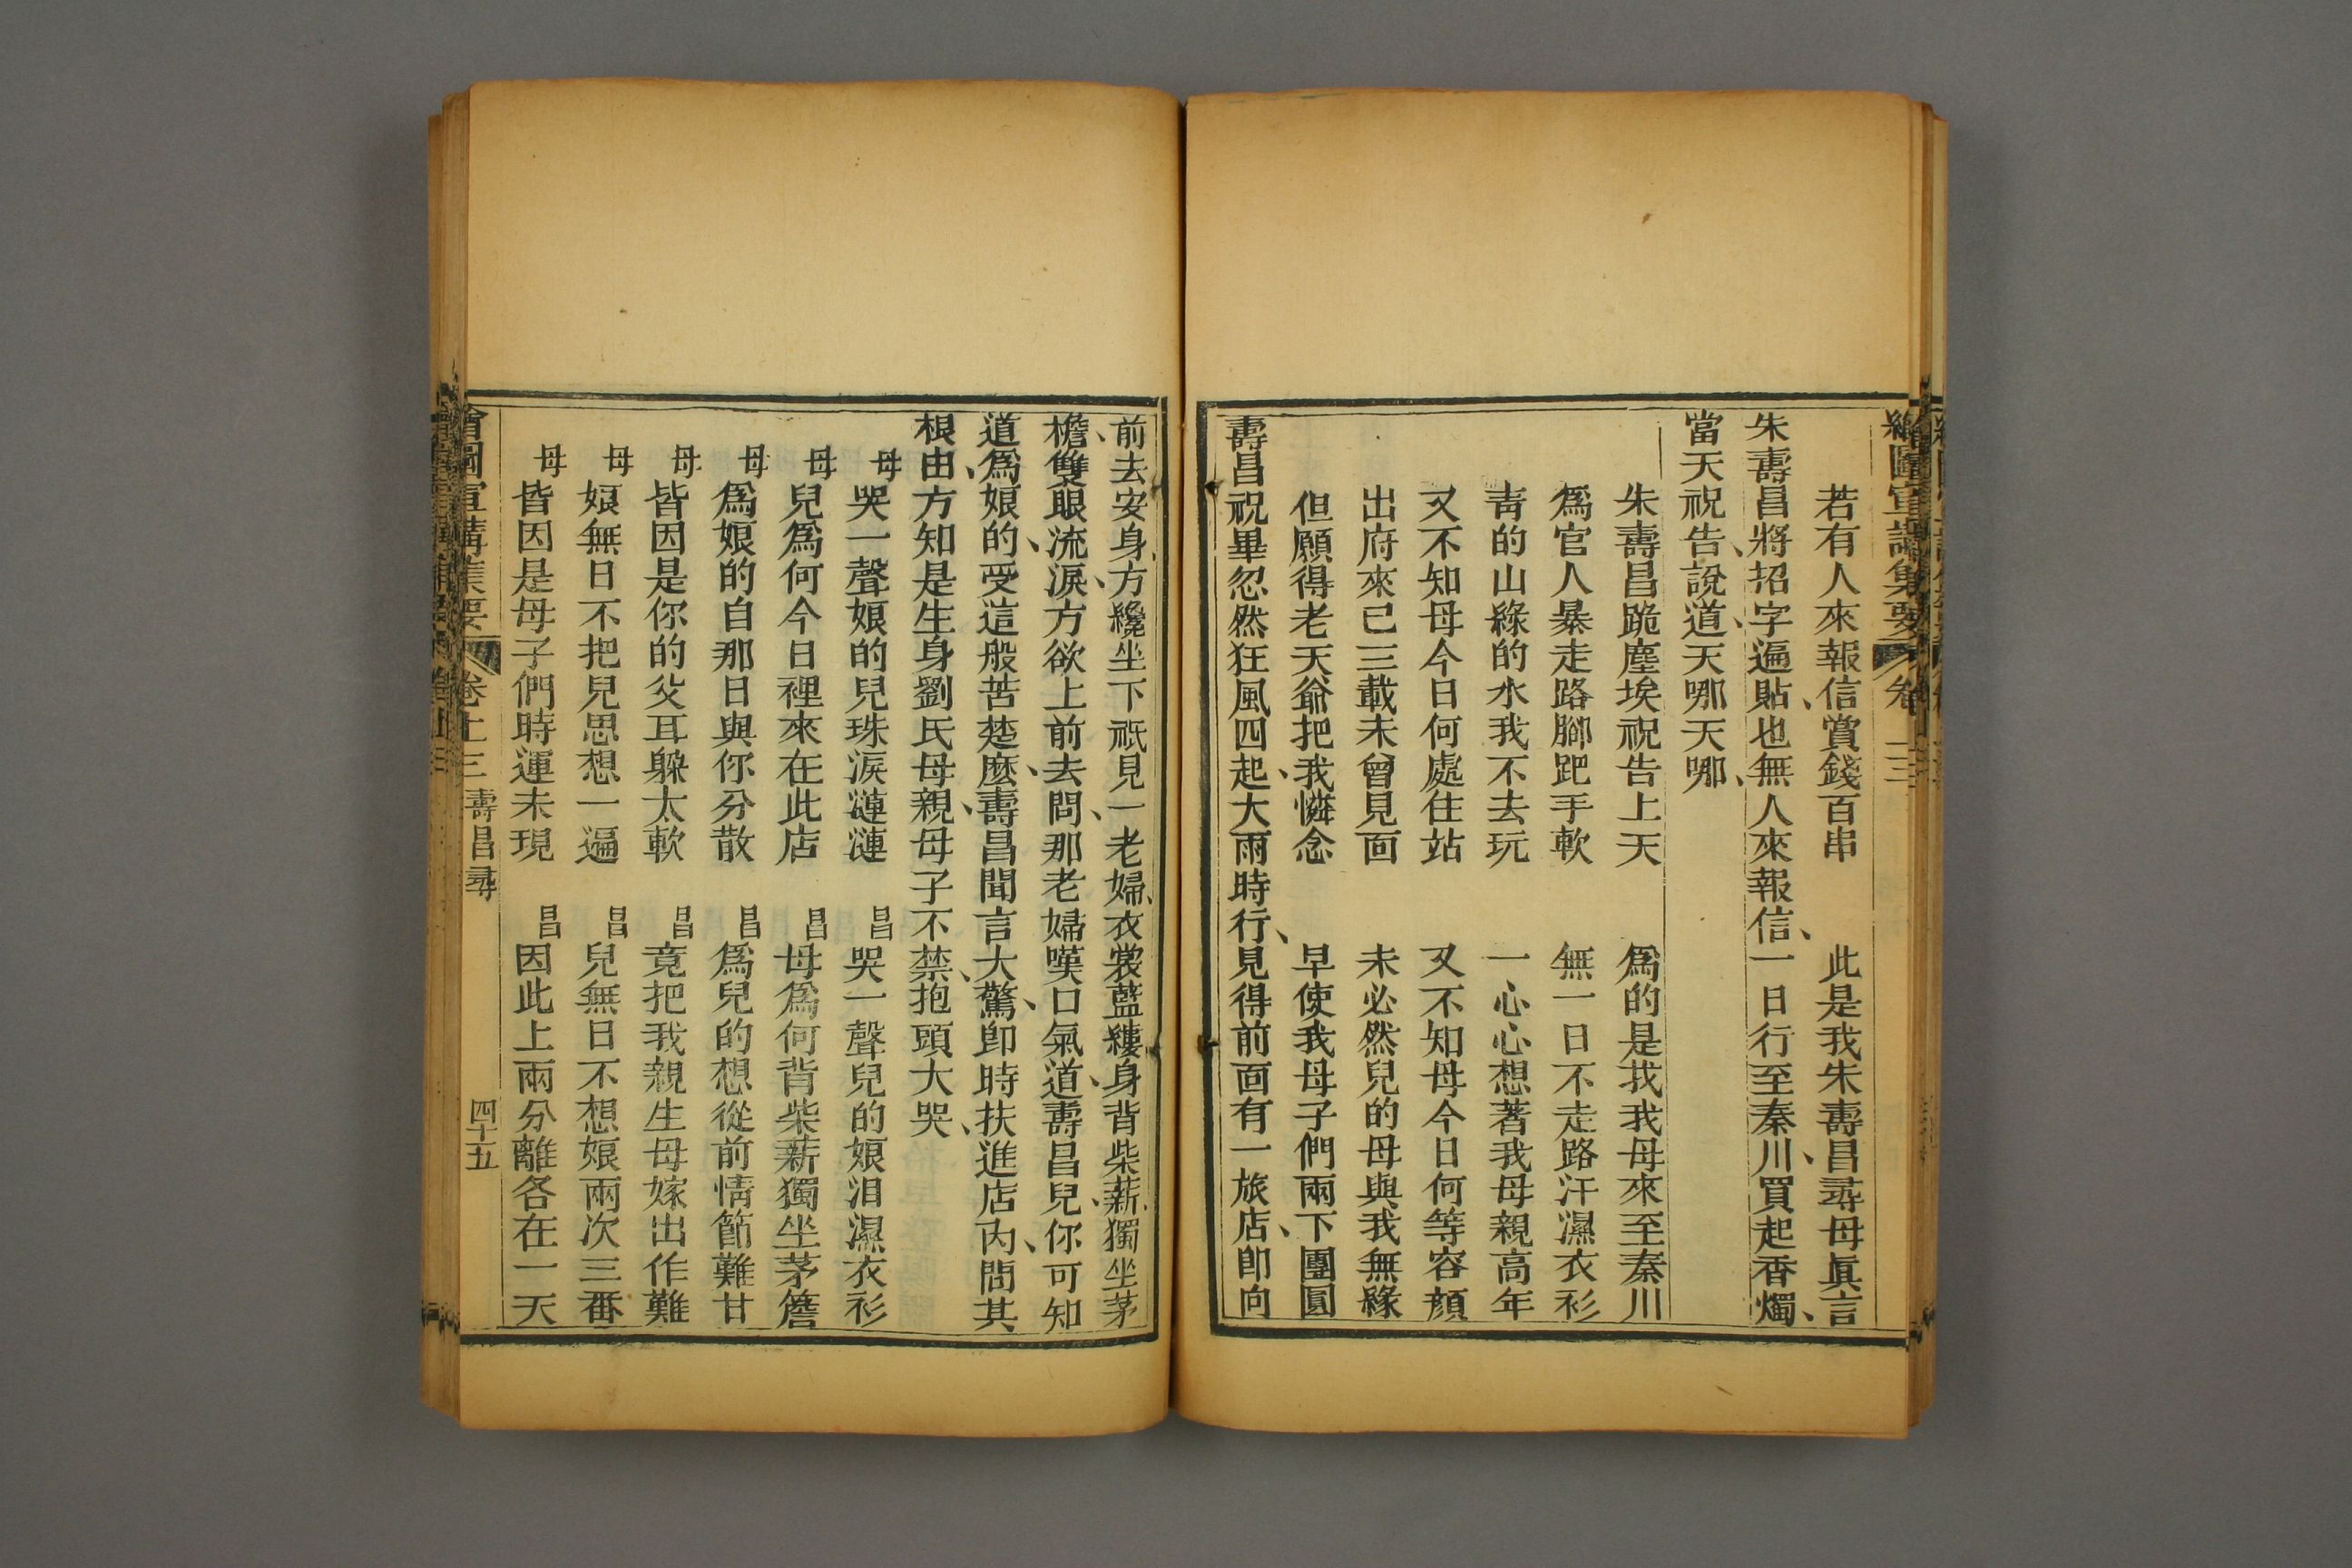 繪圖宣講集要 卷十三
若有人來報信賞錢百串 此是我朱壽昌尋母眞言
朱壽昌將招字遍貼、也無人來報信、一日行至秦川、買起香燭、
當天祝告、說道、天哪天哪、
朱壽昌跪塵埃祝告上天 爲的是找我母來至秦川
爲官人暴走路腳跁手軟 無一日不走路汗濕衣衫
靑的山綠的水我不去玩 一心心想著我母親高年
又不知母今日何處住站 又不知母今日何等容顏
出府來已三載未曾見面 未必然兒的母與我無緣
但願得老天爺把我憐念 早使我母子們兩下團圓
壽昌祝畢忽然狂風四起、大雨時行、見得前面有一旅店、卽向
前去安身、方纔坐下祇見一老婦、衣裳藍縷身背柴薪、獨坐茅
檐、雙眼流淚、方欲上前去問、那老婦嘆口氣道、壽昌兒、你可知
道爲娘的、受這般苦楚麽、壽昌聞言大驚、卽時扶進店內、問其
根由、方知是生身劉氏母親、母子不禁、抱頭大哭、
母 哭一聲娘的兒珠淚漣漣 昌 哭一聲兒的娘泪濕衣衫
母 兒爲何今日裡來在此店 昌 母爲何背柴薪獨坐茅簷
母 爲娘的自那日與你分散 昌 爲兒的想從前情節難甘
母 皆因是你的父耳躱太軟 昌 竟把我親生母嫁出作難
母 娘無日不把兒思想一遍 昌 兒無日不想娘兩次三番
母 皆因是母子們時運未現 昌 因此上兩分離各在一天
繪圖宣講集要 卷十三 壽昌尋 四十五